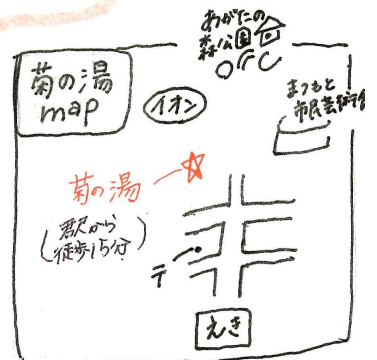 菊の湯
map
イオン
あがたの
森公園
まつもと
市民芸術館
菊の湯
(駅から
徒歩15分)
〒
えき